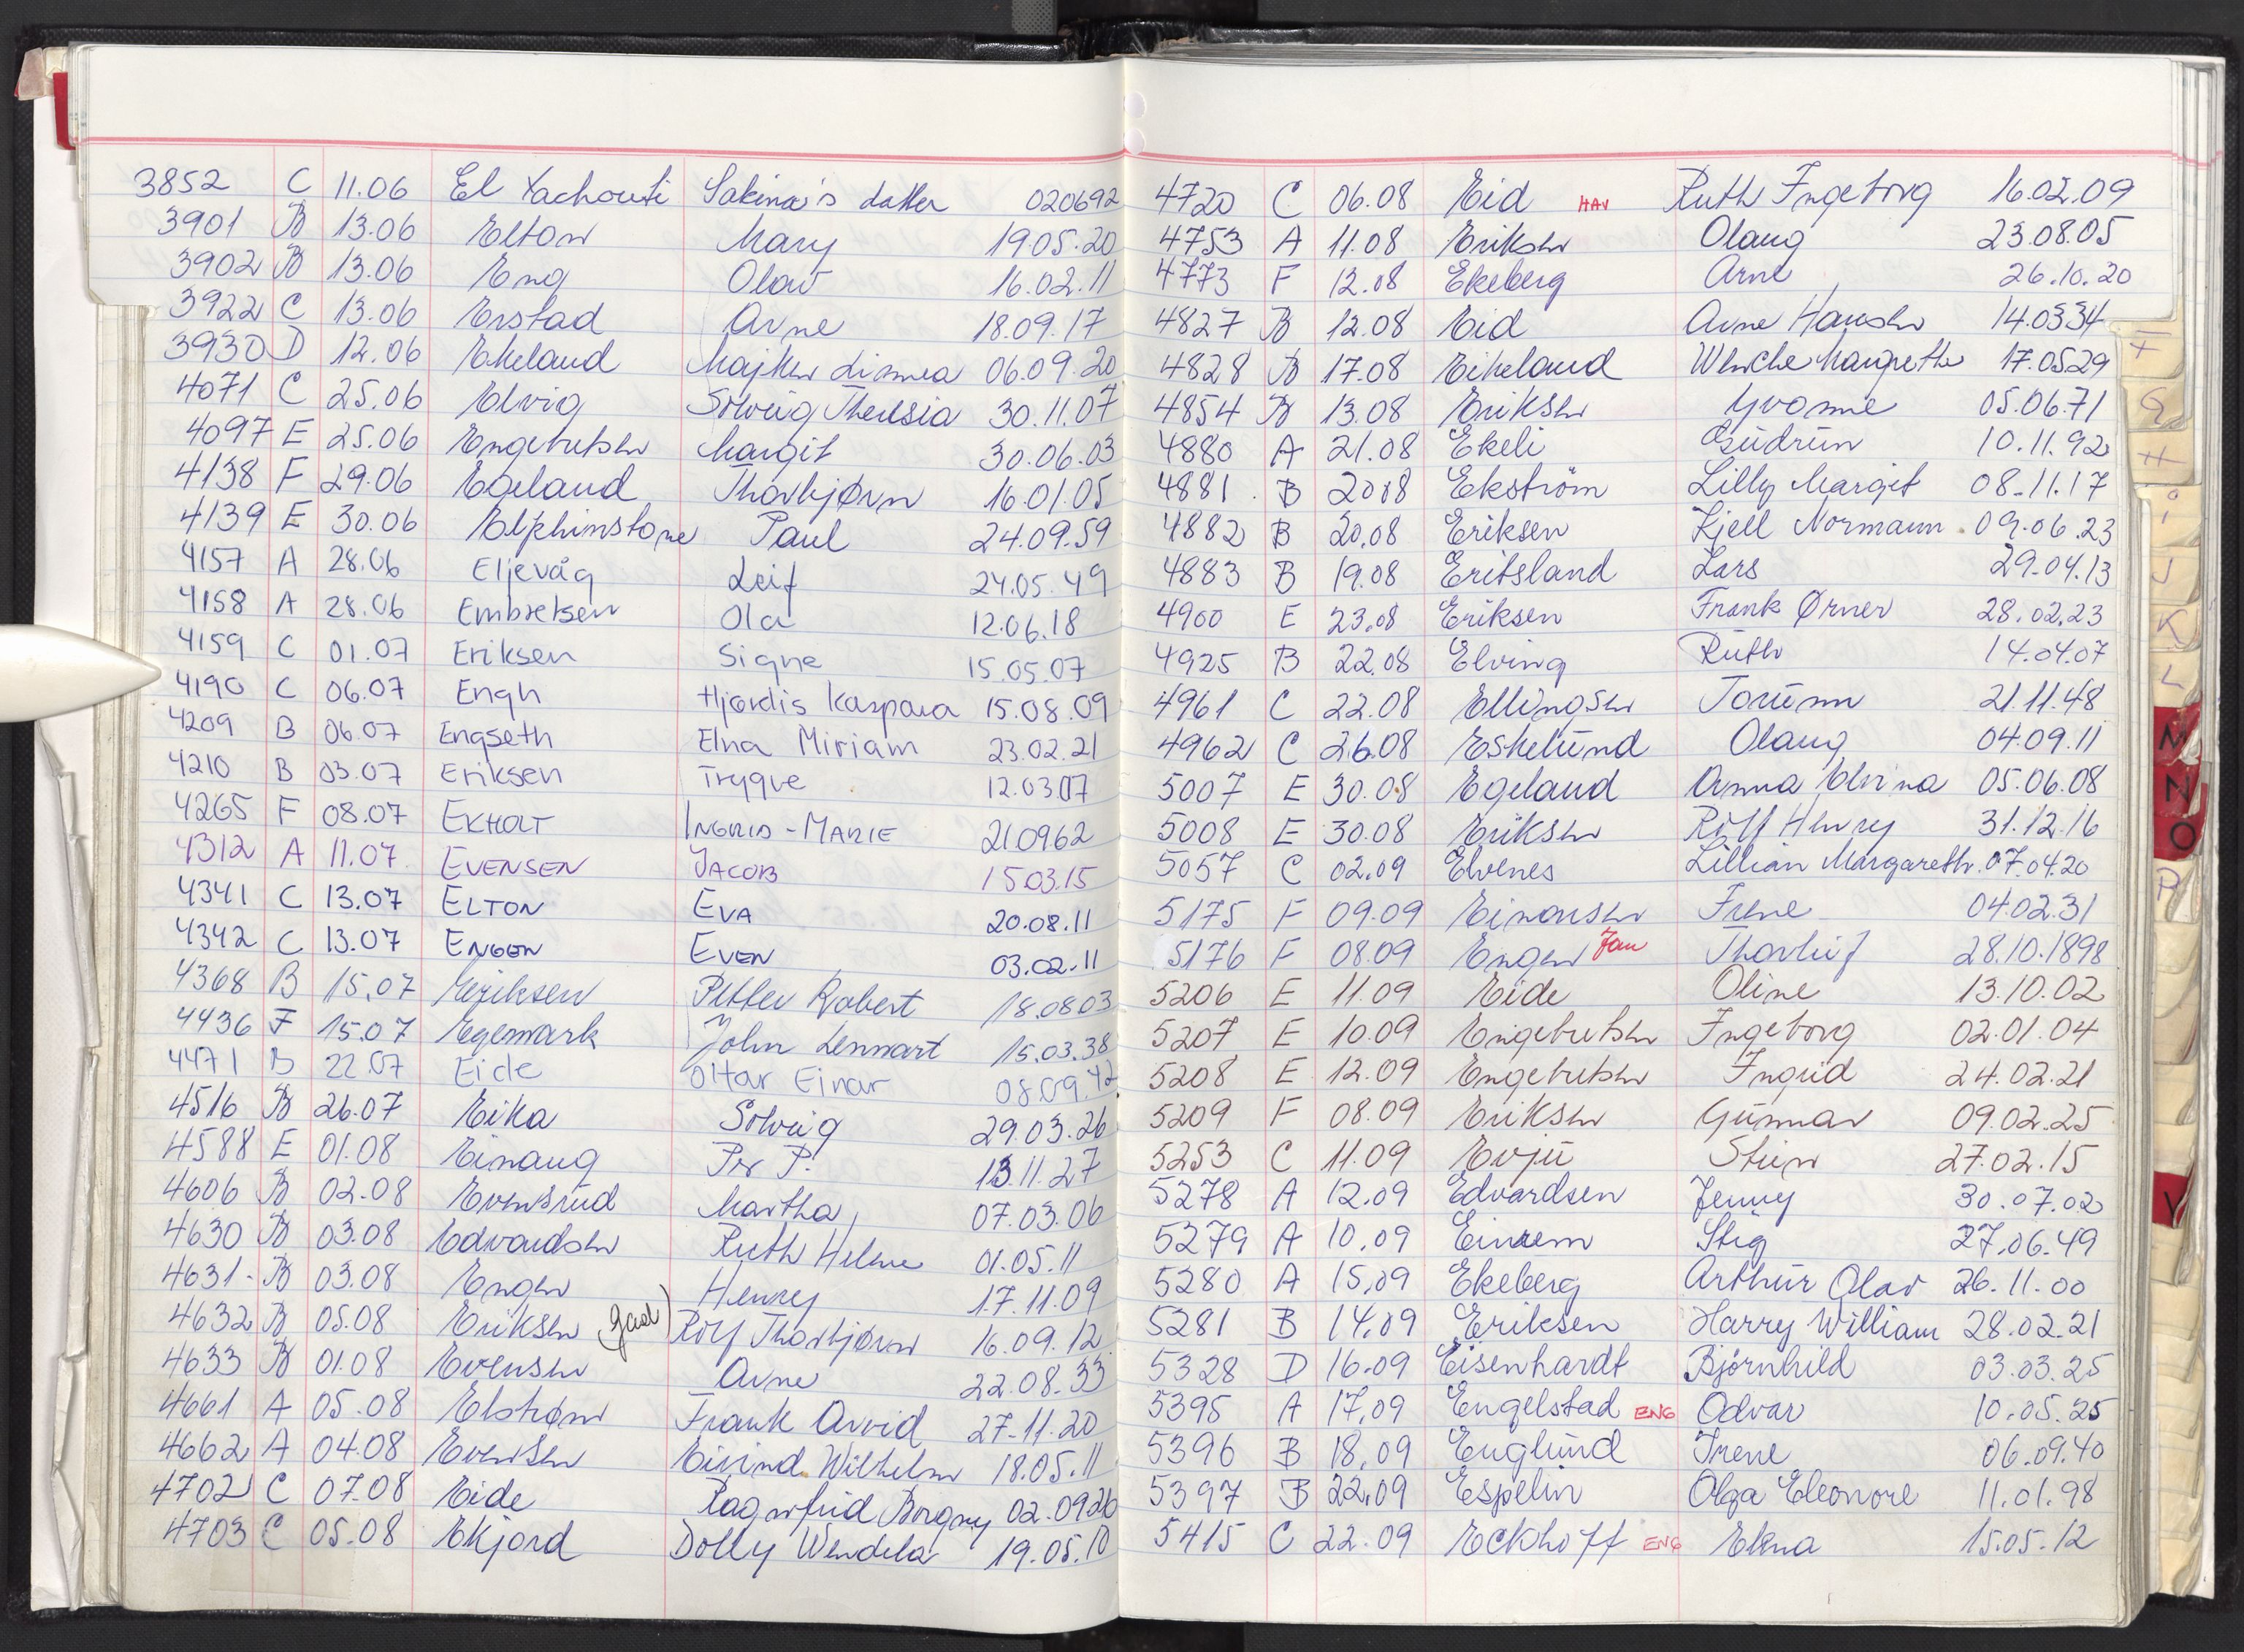 3852 C 11.06 El Yachouti Sakina's datter 020692
3901 B 13.06 Elton Mary 19.05.20
3902 B 13.06 Eng Olav 16.02.11
3922 C 13.06 Erstad Arne 18.09.17
3930 D 12.06 Ekeland Majken Linnea 06.09.20
4071 C 25.06 Elvig Solveig Theresia 30.11.07
4097 E 25.06 Engebretsen Margit 30.06.03
4138 F 29.06 Egeland Thorbjørn 16.01.05
4139 E 30.06 Elphinstone Paul 24.09.59
4157 A 28.06 Eljevåg Leif 24.05.49
4158 A 28.06 Embretsen Ola 12.06.18
4159 C 01.07 Eriksen Signe 15.05.07
4190 C 06.07 Engh Hjørdis Kaspara 15.08.09
4209 B 06.07 Engseth Elna Miriam 23.02.21
4210 B 03.07 Eriksen Trygve 12.03.07
4265 F 08.07 EKHOLT INGRID-MARIE 210962
4312 A 11.07 EVENSEN JACOB 150315
4341 C 13.07 ELTON EVA 20.08.11
4342 C 13.07 ENGEN EVEN 03.02.11
4368 B 15.07 Eriksen Petter Robert 18.08.03
4436 F 15.07 Egemark John Lennart 15.03.38
4471 B 22.07 Eide Ottar Einar 08.09.42
4516 B 26.07 Eika Solveig 29.03.26
4588 E 01.08 Einang Per P. 13.11.27
4606 B 02.08 Evensrud Martha 07.03.06
4630 B 03.08 Edvardsen Ruth Helene 01.05.11
4631 B 03.08 Engen Henry 17.11.09
4632 B 05.08 Eriksen Rolf Thorbjørn 16.09.12
4633 B 01.08 Evensen Arne 22.08.33
4661 A 05.08 Elstrøm Frank Arvid 27-11.20
4662 A 04.08 Evensen Eivind Wilhelm 18.05.11
4702 C 07.08 Eide Ragnfrid Borgny 02.09.26
4703 C 05.08 Ekjord Dolly Wendela 19.05.10
4720 C 06.08 Eid HAV Ruth Ingeborg 16.02.09
4753 A 11.08 Eriksen Olaug 23.08.05
4773 F 12.08 Ekeberg Arne 26.10.20
4827 B 12.08 Eid Arne Hansen 14.0334
4828 B 17.08 Eikeland Wenche Margrethe 17.0529
4854 B 13.08 Eriksen Yvonne 05.06.71
4880 A 21.08 Ekeli Gudrun 10.11.92
4881 B 2008 Ekström Lilly Margit 08-11.17
4882 B 20.08 Eriksen Kjell Normann 09.06.23
4883 B 19.08 Eritsland Lars 29.04.13
4900 E 23.08 Eriksen Frank Ørner 28.02.23
4925 B 22.08 Elving Ruth 14.04.07
4961 C 22.08 Ellingsen Torunn 21.11.48
4962 C 26.08 Eskelund Olaug 04.09.11
5007 E 30.08 Egeland Anna Elvina 05.06.08
5008 E 30.08 Eriksen Rolf Henry 31.12.16
5057 C 02.09 Elvenes Lillian Margareth. 07.04.20
5175 F 09.09 Einarsen Irene 04.02.31
5176 F 08.09 Engen Jan Thorleif 28.10.1898
5206 E 11.09 Eide Oline 13.10.02
5207 E 10.09 Engebretsen Ingeborg 02.01.04
5208 E 12.09 Engebretsen Ingrid 24.02.21
5209 F 08.09 Eriksen Gunnar 09.02.25
5253 C 11.09 Evju Stein 27.02.15
5278 A 12.09 Edvardsen Jenny 30.07.02
5279 A 10.09 Einrem Stig 27.06.49
5280 A 15.09 Ekeberg Arthur Olav 26.11.00
5281 B 14.09 Eriksen Harry William 28.02.21
5328 D 16.09 Eisenhardt Bjørnhild 03.03.25
5395 A 17.09 Engelstad ENG Odvar 10.05.25
5396 B 18.09 Englund Irene 06.09.40
5397 B 22.09 Espelin Olga Eleonore 11.01.98
5415 C 22.09 Eckhoff ENG Edna 15.05.12
G
H
I
J
K
L
M
N
O
P
V